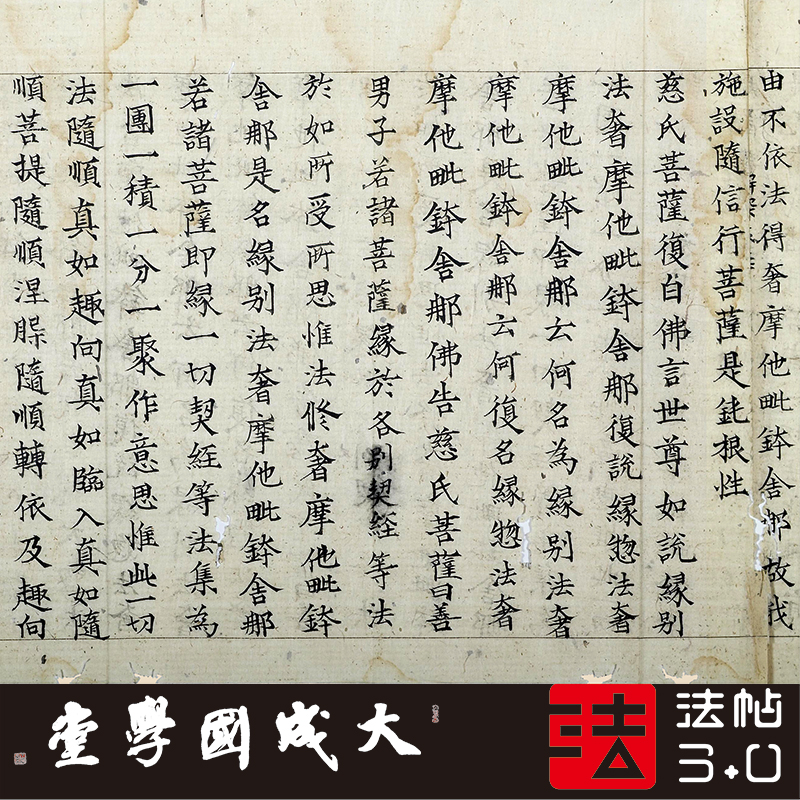 由不依法得奢摩他毗鉢舍那故我
施設隨信行菩薩是鈍根性
慈氏菩薩復白佛言世尊如說緣別
法奢摩他毗鉢舍那復說緣惣法奢
摩他毗鉢舍那云何名為緣別法奢
摩他毗鉢舍那云何復名緣惣法奢
摩他毗鉢舍那佛告慈氏菩薩曰善
男子若諸菩薩緣於各別契經等法
於如所受所思惟法修奢摩他毗鉢
舍那是名緣別法奢摩他毗鉢舍那
若諸菩薩即緣一切契經等法集為
一團一積一分一聚作意思惟此一切
法隨順真如趣向真如臨入真如隨
順菩提隨順涅槃隨順轉依及趣向
大成國學堂
法
法帖
3.0